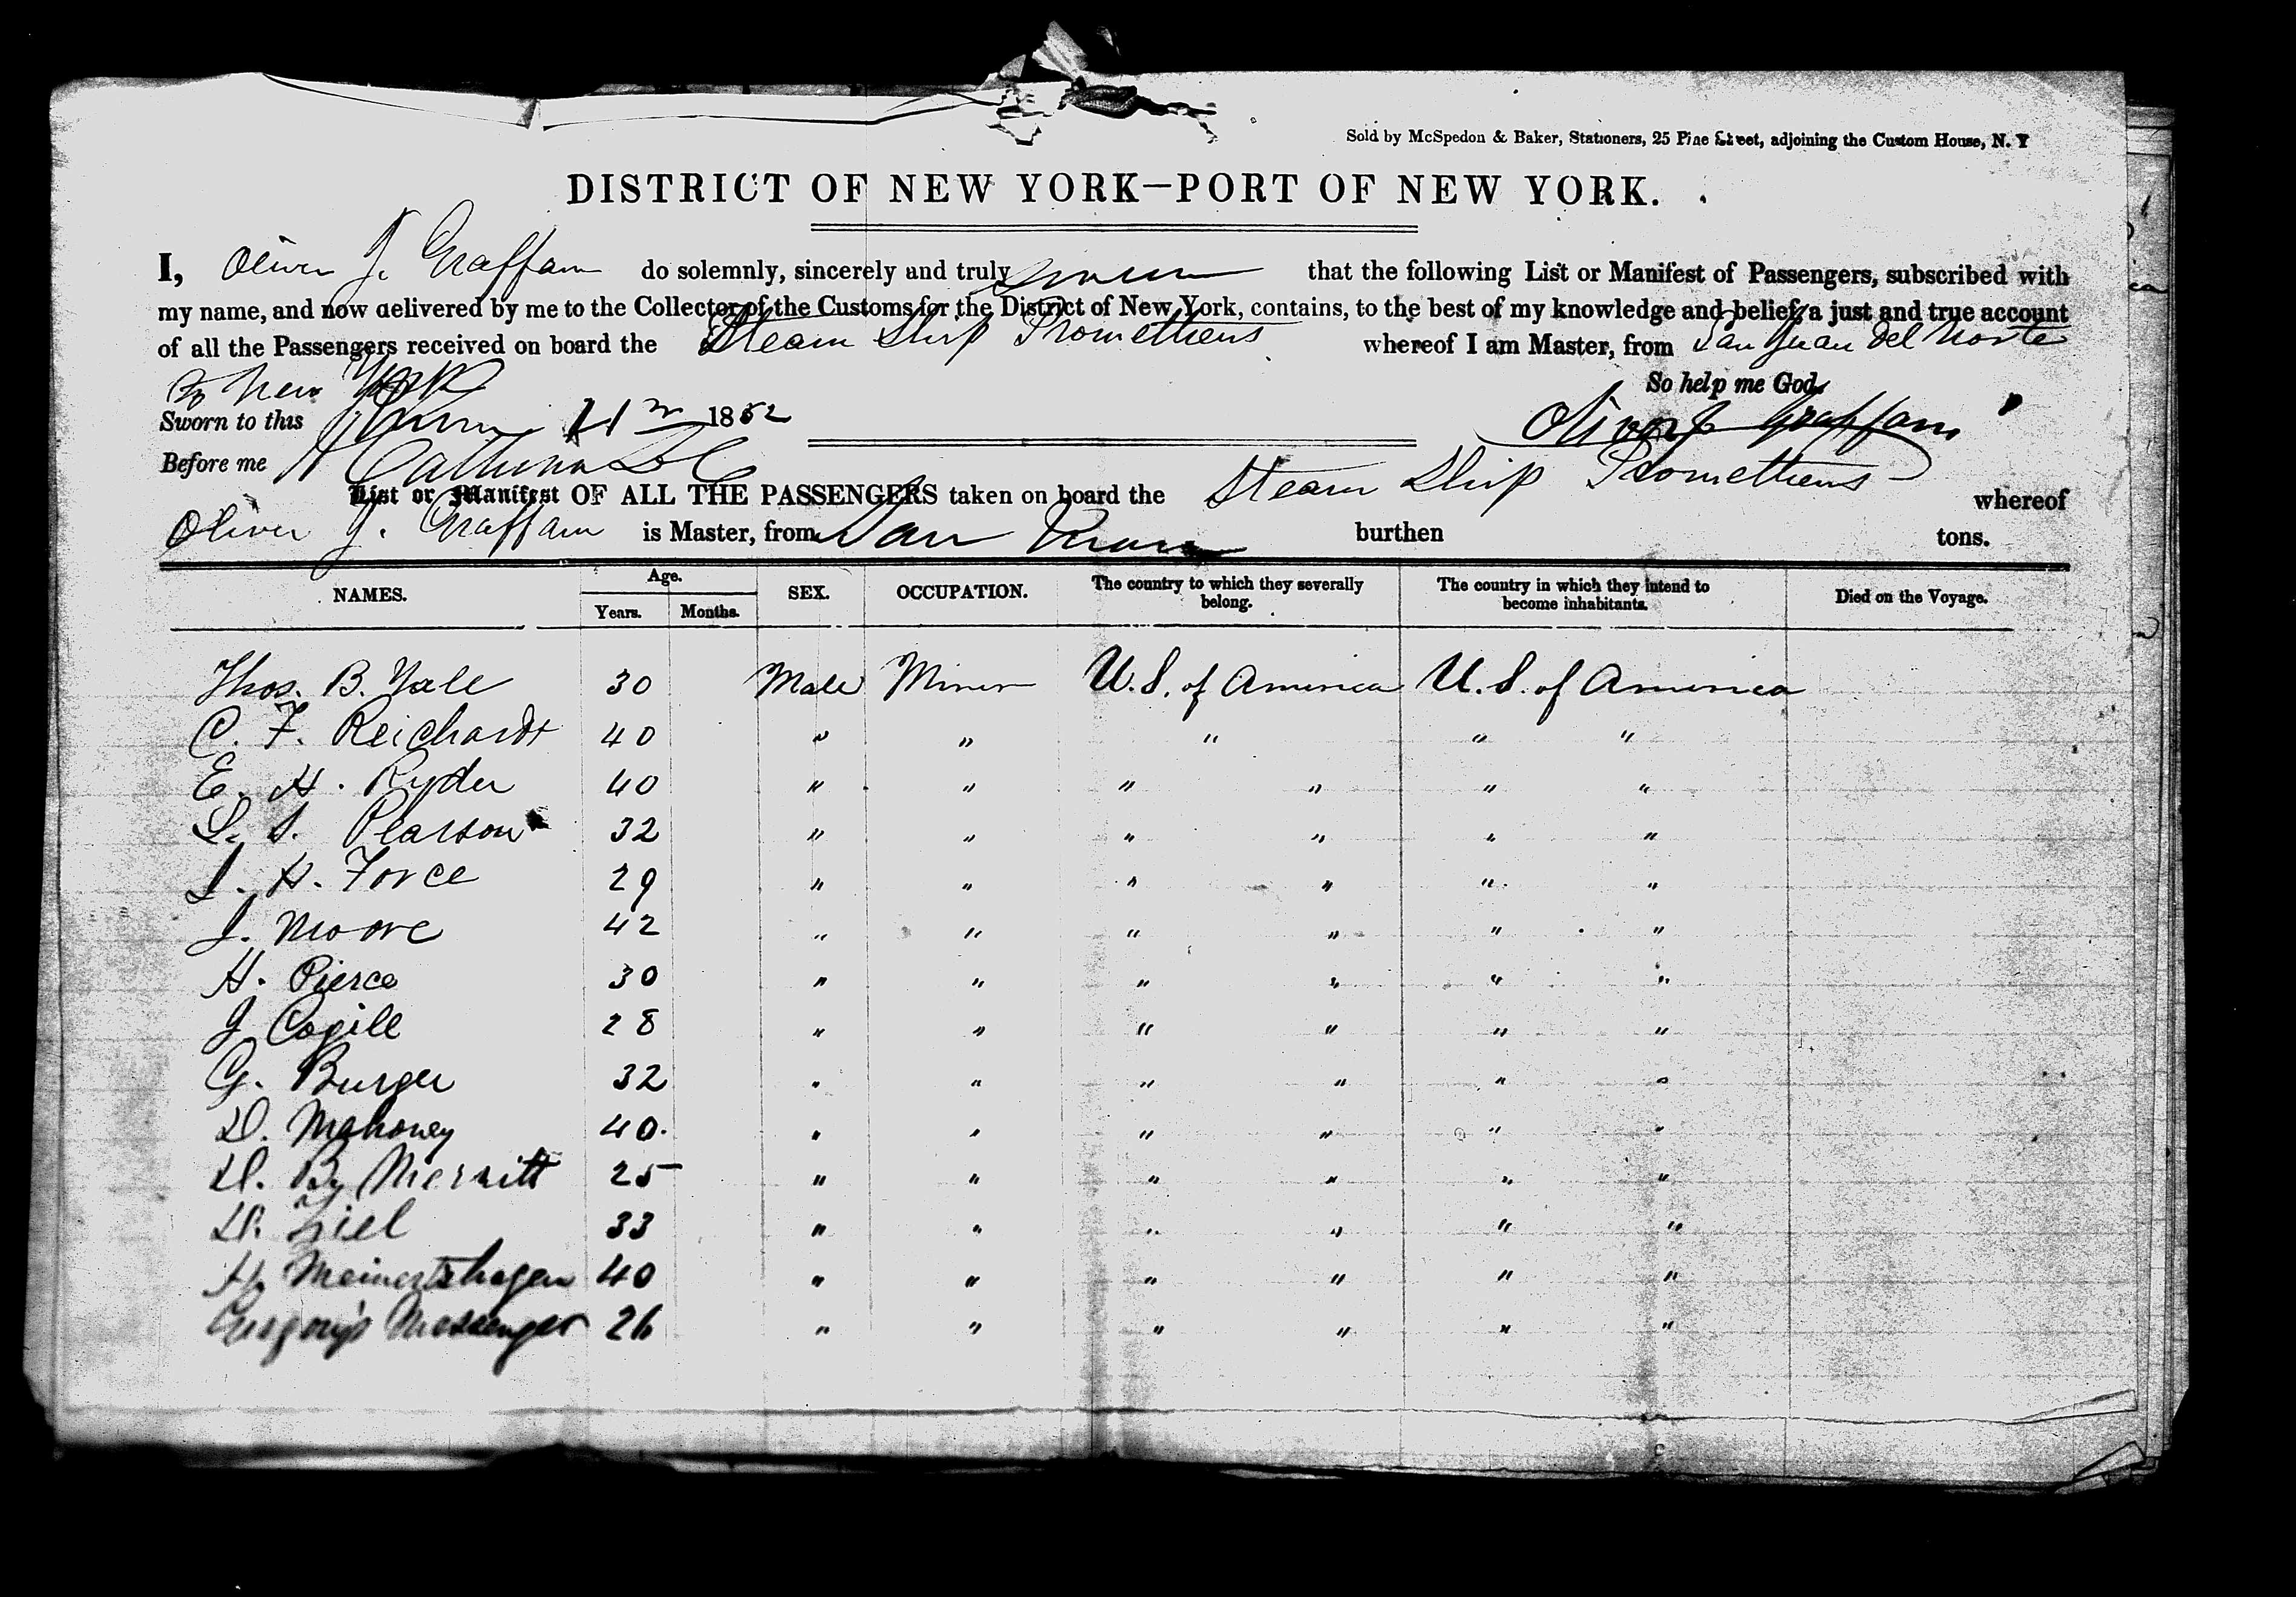 Sold by McSpedon & Baker, Stationers, 25 Pine Street, adjoining the Custom House, N. Y
DISTRICT OF NEW YORK—PORT OF NEW YORK.
I, Oliver J. Graffam do solemnly, sincerely and truly swear that the following List or Manifest of Passengers, subscribed with
my name, and now delivered by me to the Collector of the Customs for the District of New York, contains, to the best of my knowledge and belief, a just and true account
of all the Passengers received on board the Steam Ship Prometheus whereof I am Master, from San Juan del Norte
to New York So help me God.
Sworn to this 1852 Oliver J Graffam
Before me
List or Manifest OF ALL THE PASSENGERS taken on board the Steam Ship Prometheus whereof
Oliver J. Graffam is Master, from San Juan burthen tons.
NAMES. Age. Years. Months. SEX. OCCUPATION. The country to which they severally belong. The country in which they intend to become inhabitants. Died on the Voyage.
Thos. B. Yale 30 Male Miner U.S. of America U.S. of America
C. F. Reichardt 40 " " " " "
E. H. Ryder 40 " " " " " "
L. S. Pearson 32 " " " " " "
I. H. Force 29 " " " " " "
J. Moore 42 " " " " " "
H. Pierce 30 " " " " " "
J Cogill 28 " " " " " "
G. Burger 32 " " " " " "
D. Mahoney 40. " " " " " "
D. B. Merritt 25 " " " " " "
33 " " " " " "
H. Meinertzhagen 40 " " " " " "
Gregory's Messenger 26 " " " " " "